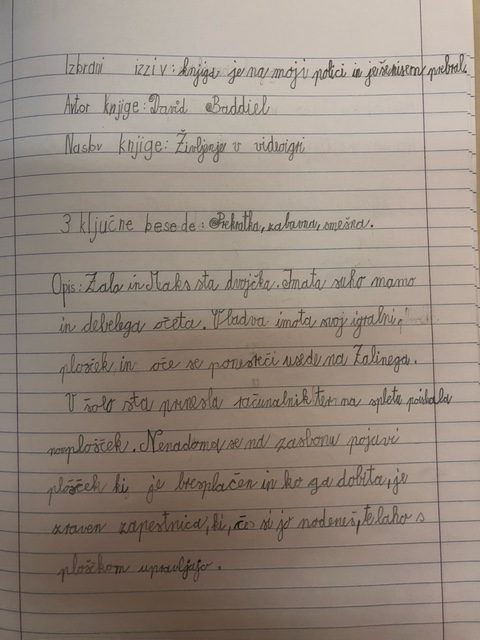 Izbrani izziv: knjiga je na moji polici in je še nisem prebral.
Avtor knjige: David Baddiel
Naslov knjige: Življenje v videoigri
3 ključne besede: Prekratka, zabavna, smešna.
Opis: Zala in Maks sta dvojčka. Imata suho mamo
in debelega očeta. Vsak ima svoj igralni
plošček, in oče se ponesreči usede na Zalinega.
V šolo sta prinesla računalnik ter na spletu poiskala
plošček. Nenadoma se na zaslonu pojavi
plošček ki je brezplačen in ko ga dobita, je
zraven zapestnica, ki, če si jo nadeneš, te lahko s
ploščkom upravljajo.